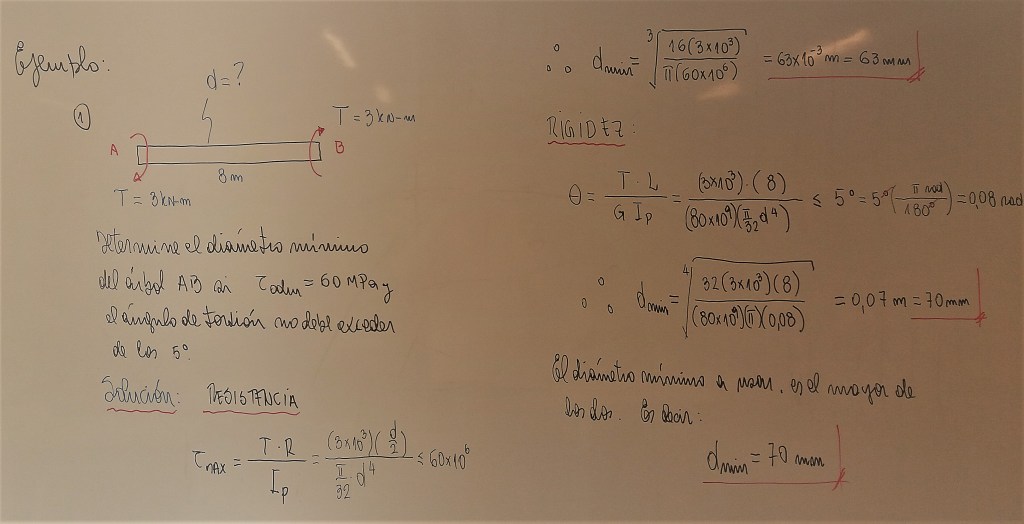 Ejemplo:
d=?
①
T = 3kN-m
A
B
8m
T = 3kN-m
Determine el diámetro mínimo
del árbol AB si τadm = 60 MPa y
el ángulo de torsión no debe exceder
de los 5°.
Solución: RESISTENCIA
τMAX = T·R / Ip = (3x10³)(d/2) / π/32·d⁴ ≤ 60x10⁶
∴ dmin = ³√16(3x10³) / π(60x10⁶) = 63x10⁻³m = 63mm
RIGIDEZ:
θ = T·L / G Ip = (3x10³)·(8) / (80x10⁹)(π/32 d⁴) ≤ 5° = 5°(π rad / 180°) = 0,08 rad
∴ dmin = ⁴√32(3x10³)(8) / (80x10⁹)(π)(0,08) = 0,07m = 70mm
El diámetro mínimo a usar, es el mayor de
los dos. Es decir:
dmin = 70 mm